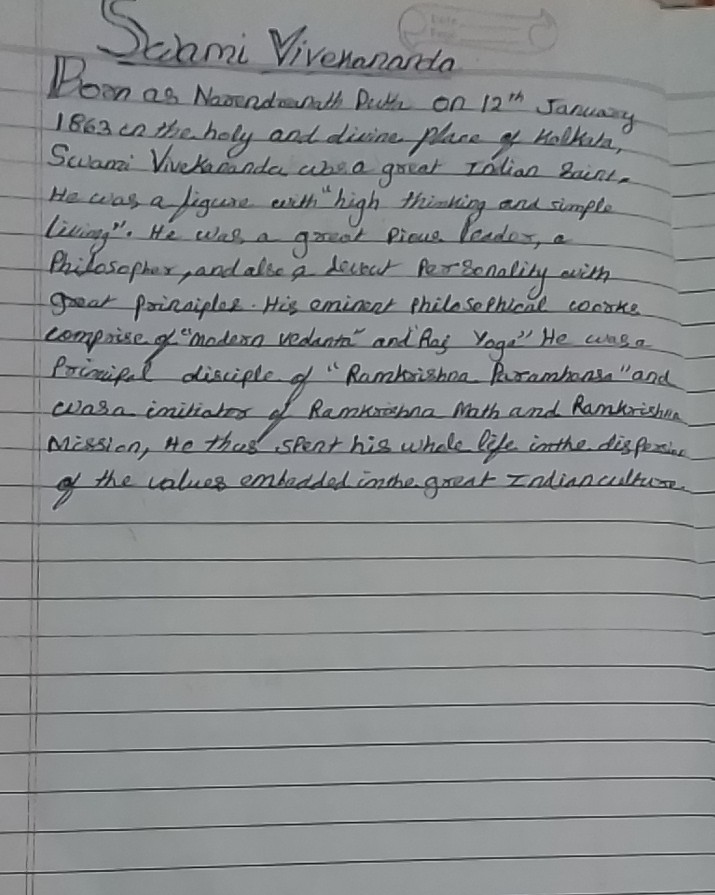 Swami Vivekananda
Born as Narendranath Dutta on 12th January
1863 in the holy and divine place of Kolkata,
Swami Vivekananda was a great Indian Saint.
He was a figure with "high thinking and simple
living". He was a great Pious leader, a
Philosopher, and also a devout Personality with
great Principles. His eminent Philosophical works
comprise of "modern vedanta" and "Raj Yoga" He was a
Principal disciple of "Ramkrishna Paramhansa" and
was a initiator of Ramkrishna Math and Ramkrishna
Mission, He thus spent his whole life in the dispersion
of the values embedded in the great Indian culture.